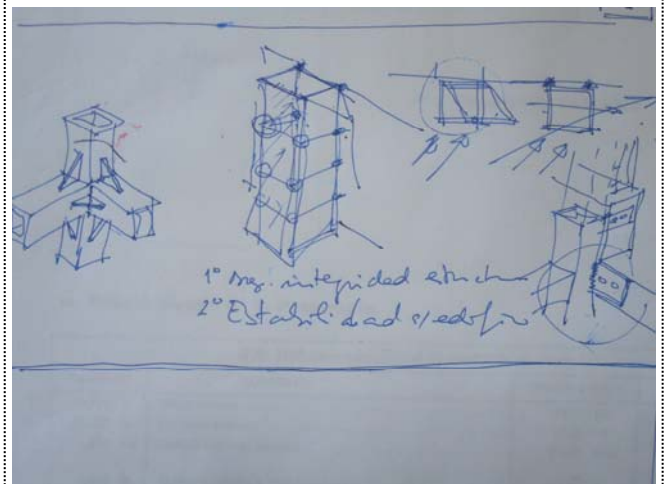 1º Seg. integridad estruct
2º Estabilidad s/edificio